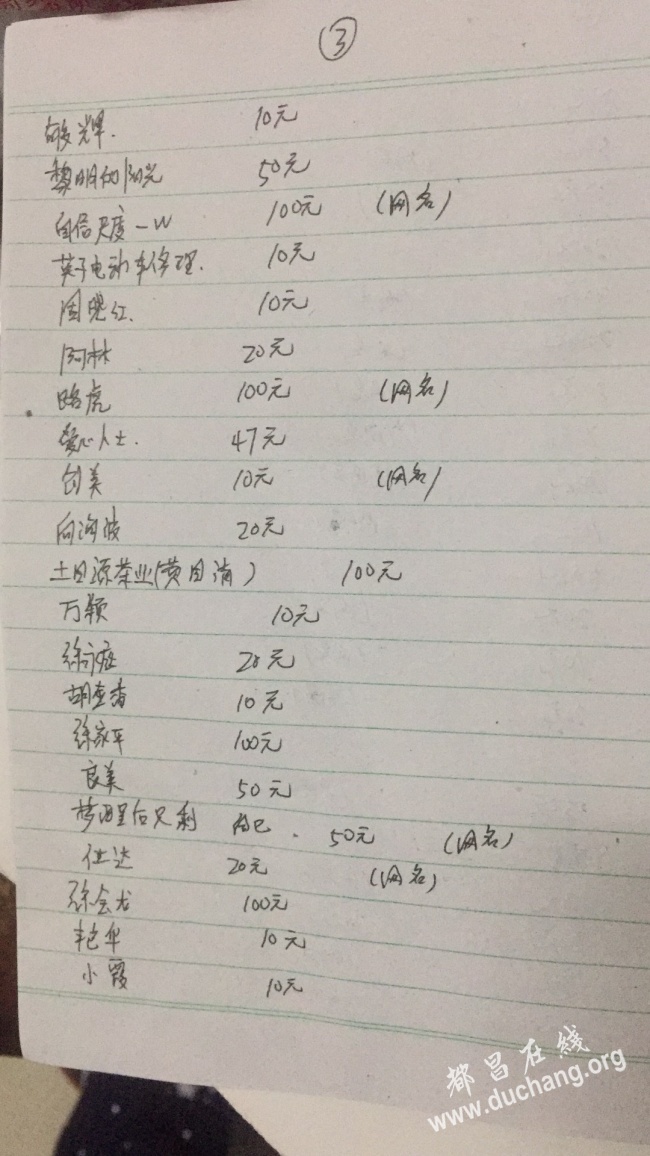 ③
辉. 10元
黎明的阳光 50元
自信尺度一W 100元 (网名)
英子电动车修理. 10元
周晓红. 10元
阿林 20元
路虎 100元 (网名)
爱心人士. 47元
创美 10元 (网名)
向海波 20元
土目源茶业(黄目清) 100元
万颖 10元
徐 20元
胡 香 10元
徐家平 100元
良美 50元
梦里后只剩 自己. 50元 (网名)
仕达 20元 (网名)
徐会龙 100元
艳华 10元
小霞 10元
都昌在线
www.duchang.org